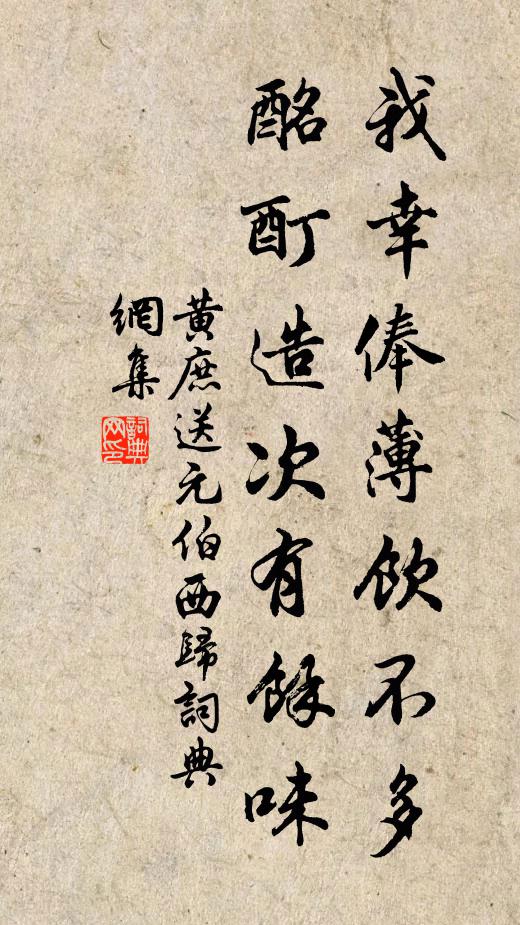 我幸俸薄飲不多
酩酊造次有餘味
黃庶送元伯西歸詞典
網集
詞典網印